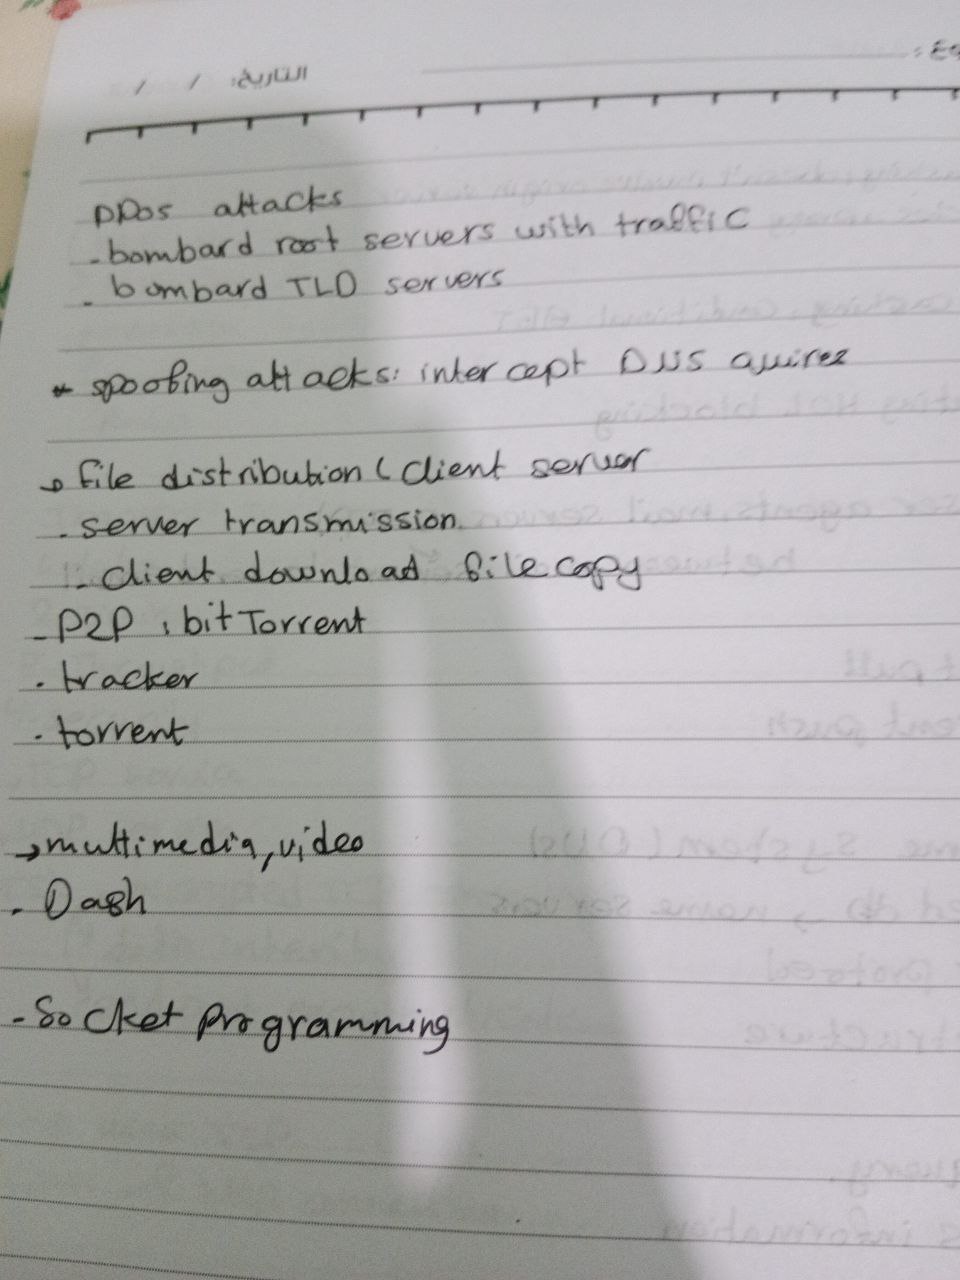 التاريخ: / /
DDos attacks
-bombard root servers with traffic
. bombard TLD servers
* spoofing attacks: intercept DNS quires
→ file distribution (Client server
. server transmission.
- Client download file copy
- P2P : bitTorrent
. tracker
. torrent
→ multimedia, video
. Dash
- Socket programming